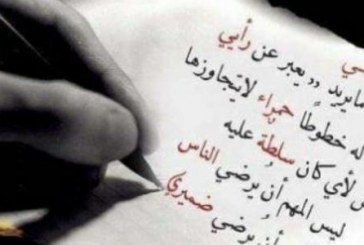 مايريد ,, يعبر عن رأيي
له خطوطاً حمراء لا يتجاوزها
لأي كان سلطة عليه
ليس المهم أن يرضي الناس
أن يرضي ضميري